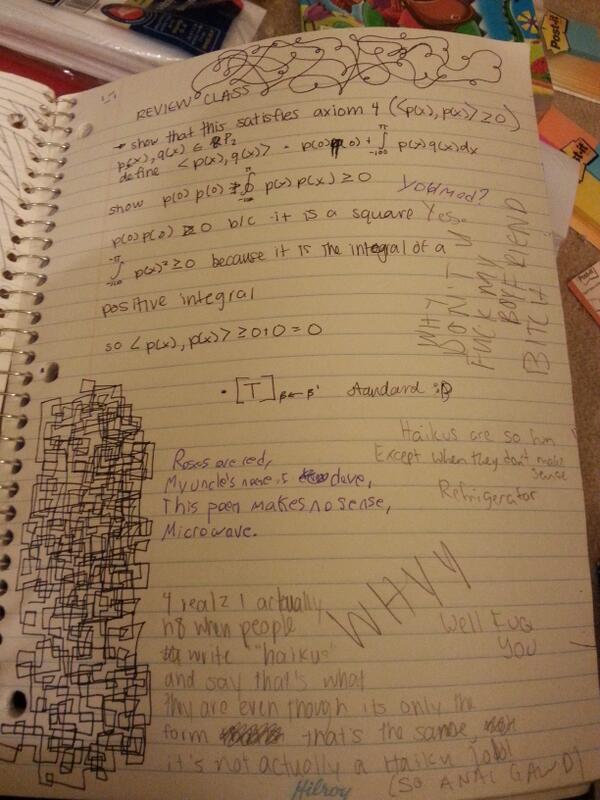 REVIEW CLASS
→ show that this satisfies axiom 4 (<p(x), p(x)> ≥ 0)
p(x), q(x) ∈ P₂
define <p(x), q(x)> = p(0) q(0) + ∫ p(x) q(x) dx
show p(0) p(0) + ∫ p(x) p(x) ≥ 0
you mad?
p(0) p(0) ≥ 0 b/c it is a square
Yes.
∫ p(x)² ≥ 0 because it is the integral of a
positive integral
so <p(x), p(x)> ≥ 0+0 = 0
WHY
DON'T U
FUCK MY
BOYFRIEND
BITCH
• [T] β←β' standard β
Haikus are so fun
Except when they don't make
sense
Refrigerator
Roses are red,
My uncle's name is dave,
This poem makes no sense,
Microwave.
WHYY
Well FUQ
YOU
4 realz I actually
h8 when people
write "haikus"
and say that's what
they are even though its only the
form that's the same,
it's not actually a Haiku lolol
(SO ANAL GAWD)
Hilroy
Post-it
Post-it